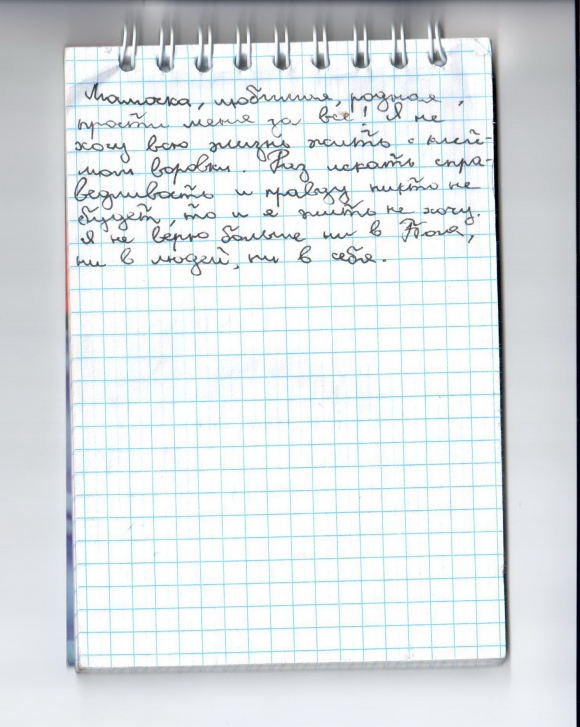 Мамочка, любимая, родная,
прости меня за все! Я не
хочу всю жизнь жить с клей-
мом воровки. Раз искать спра-
ведливость и правду никто не
будет, то и я жить не хочу.
Я не верю больше ни в Бога,
ни в людей, ни в себя.